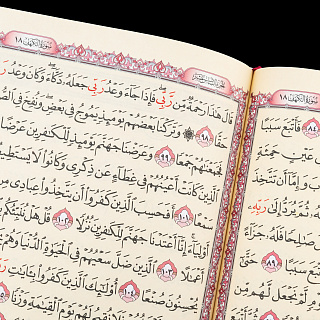 سُورَةُ الكَهْفِ ١٨
الجُزْءُ السَّادِسَ عَشَرَ
قَالَ هَٰذَا رَحْمَةٌ مِّن رَّبِّي فَإِذَا جَاءَ وَعْدُ رَبِّي جَعَلَهُ دَكَّاءَ وَكَانَ وَعْدُ رَبِّي
حَقًّا ٩٨ وَتَرَكْنَا بَعْضَهُمْ يَوْمَئِذٍ يَمُوجُ فِي بَعْضٍ وَنُفِخَ فِي الصُّورِ
فَجَمَعْنَاهُمْ جَمْعًا ٩٩ وَعَرَضْنَا جَهَنَّمَ يَوْمَئِذٍ لِّلْكَافِرِينَ عَرْضًا
الَّذِينَ كَانَتْ أَعْيُنُهُمْ فِي غِطَاءٍ عَن ذِكْرِي وَكَانُوا لَا يَسْتَطِيعُونَ
سَمْعًا ١٠١ أَفَحَسِبَ الَّذِينَ كَفَرُوا أَن يَتَّخِذُوا عِبَادِي مِن
أَوْلِيَاءَ إِنَّا أَعْتَدْنَا جَهَنَّمَ لِلْكَافِرِينَ نُزُلًا ١٠٢ قُلْ هَلْ نُنَبِّئُكُم
أَعْمَالًا ١٠٣ الَّذِينَ ضَلَّ سَعْيُهُمْ فِي الْحَيَاةِ الدُّنْيَا وَهُمْ
يُحْسِنُونَ صُنْعًا ١٠٤ أُولَٰئِكَ الَّذِينَ كَفَرُوا بِآيَاتِ
لَهُمْ يَوْمَ الْقِيَامَةِ وَزْنًا
سُورَةُ الكَهْفِ ١٨
٨٤ فَأَتْبَعَ سَبَبًا
عَيْنٍ حَمِئَةٍ
وَإِمَّا أَن تَتَّخِذَ
ثُمَّ يُرَدُّ إِلَىٰ رَبِّهِ
صَالِحًا فَلَهُ جَزَاءً
سَبَبًا ٨٩ حَتَّىٰ
لَّمْ نَجْعَل لَّهُم مِّن